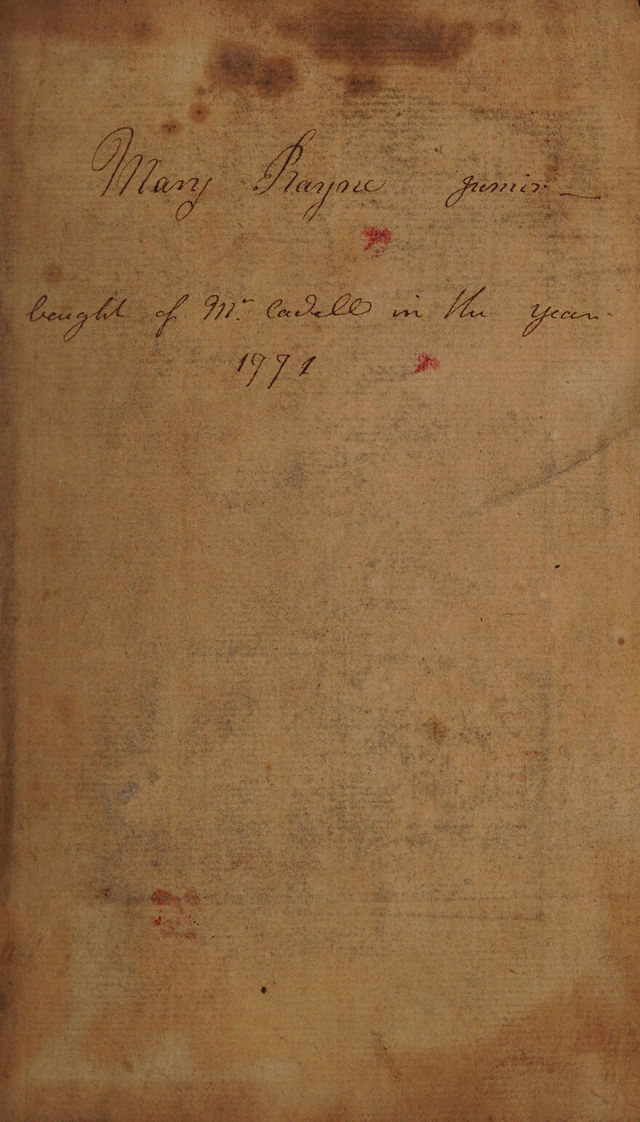 Mary Rayne junior
bought of Mr. Cadell in the year
1771